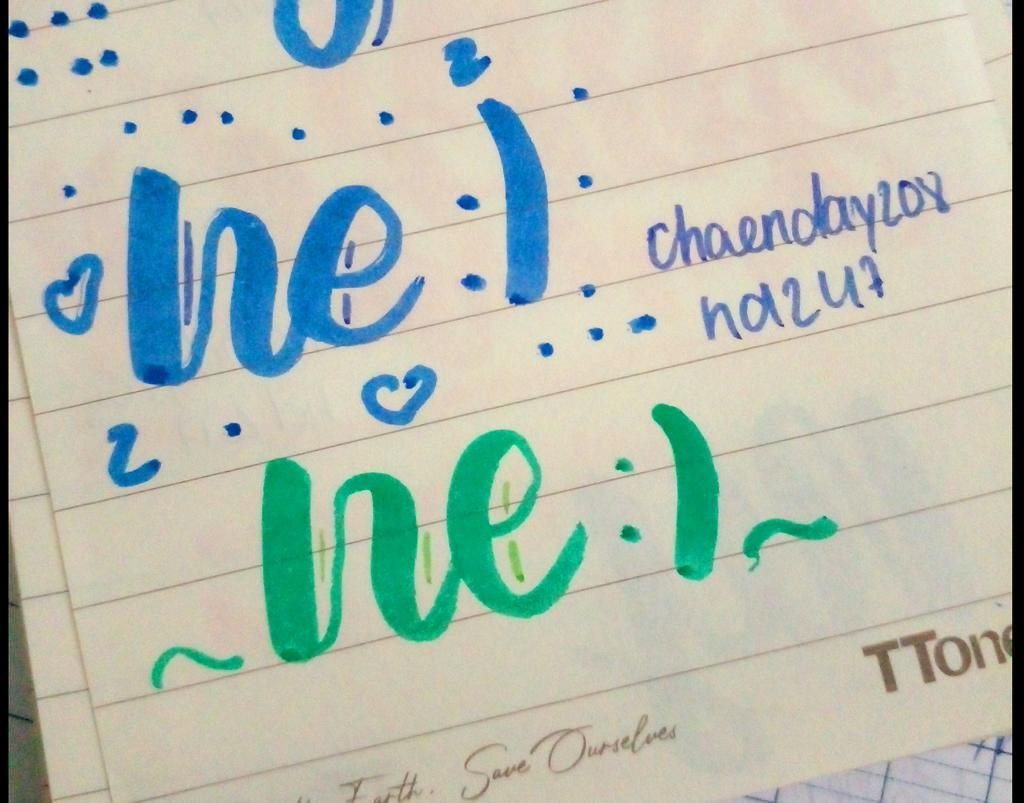 he :)
2
chaenday208
nd247
2
he :)
~ ~
TTone
Earth. Save Ourselves